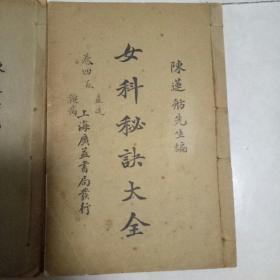 陳蓮舫先生編
女科秘訣大全
卷四五
上海廣益書局發行